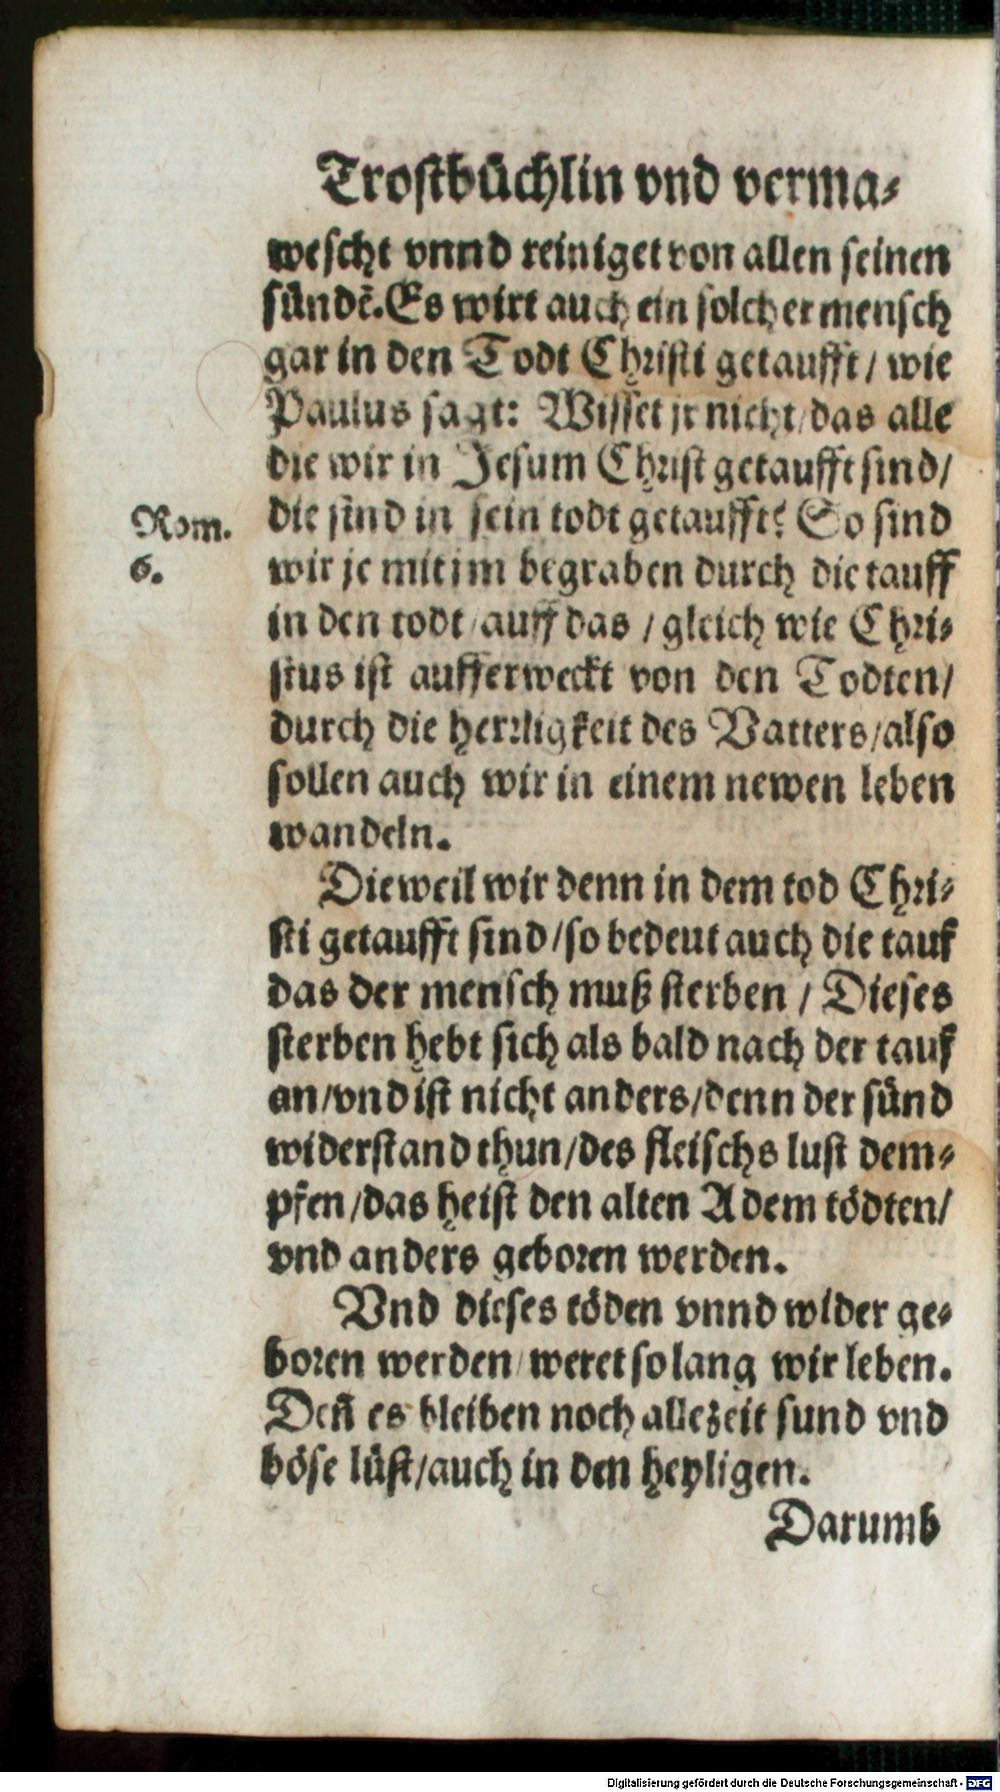 Trostbüchlin vnd verma⸗
wescht vnnd reiniget von allen seinen
sündẽ. Es wirt auch ein solcher mensch
gar in den Todt Christi getaufft / wie
Paulus sagt: Wisset jr nicht / das alle
die wir in Jesum Christ getaufft sind /
Rom. 6.
die sind in sein todt getaufft? So sind
wir je mit im begraben durch die tauff
in den todt / auff das / gleich wie Chri⸗
stus ist aufferweckt von den Todten /
durch die herrligkeit des Vatters / also
sollen auch wir in einem newen leben
wandeln.
Dieweil wir denn in dem tod Chri⸗
sti getaufft sind / so bedeut auch die tauf
das der mensch muß sterben / Dieses
sterben hebt sich als bald nach der tauf
an / vnd ist nicht anders / denn der sünd
widerstand thun / des fleischs lust dem⸗
pfen / das heist den alten Adem tödten /
vnd anders geboren werden.
Vnd dieses töden vnnd wider ge⸗
boren werden / weret so lang wir leben.
Deñ es bleiben noch allezeit sund vnd
böse lüst / auch in den heyligen.
Darumb
Digitalisierung gefördert durch die Deutsche Forschungsgemeinschaft - DFG